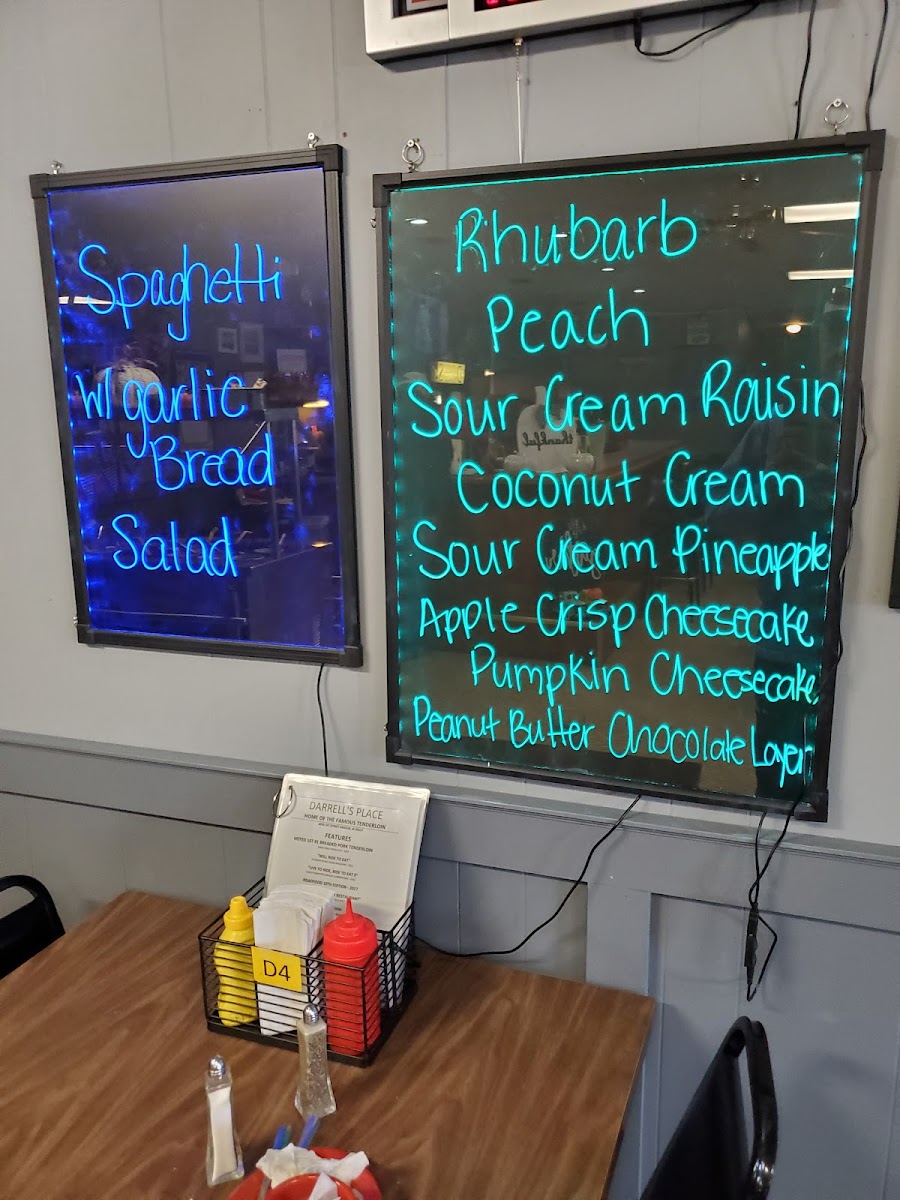 Spaghetti
w/ garlic
Bread
Salad
Rhubarb
Peach
Sour Cream Raisin
Coconut Cream
Sour Cream Pineapple
Apple Crisp Cheesecake
Pumpkin Cheesecake
Peanut Butter Chocolate Layer
thankful
DARRELL'S PLACE
HOME OF THE FAMOUS TENDERLOIN
FEATURES
BREADED PORK TENDERLOIN
"WILL RIDE TO EAT"
"LIVE TO RIDE, RIDE TO EAT II"
EDITION - 2017
RESTAURANT"
D4